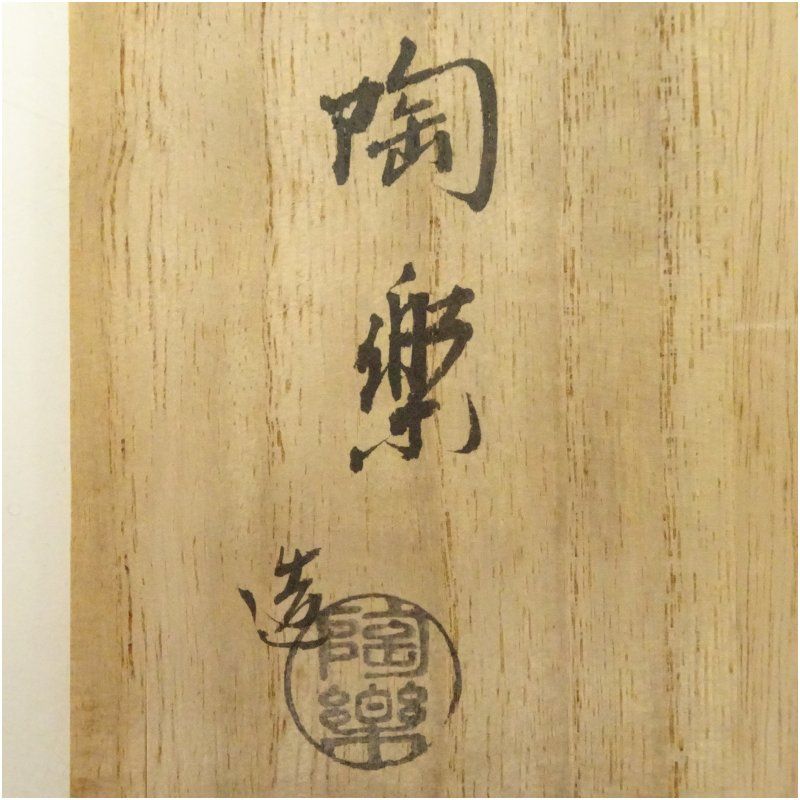 陶樂
造
陶樂